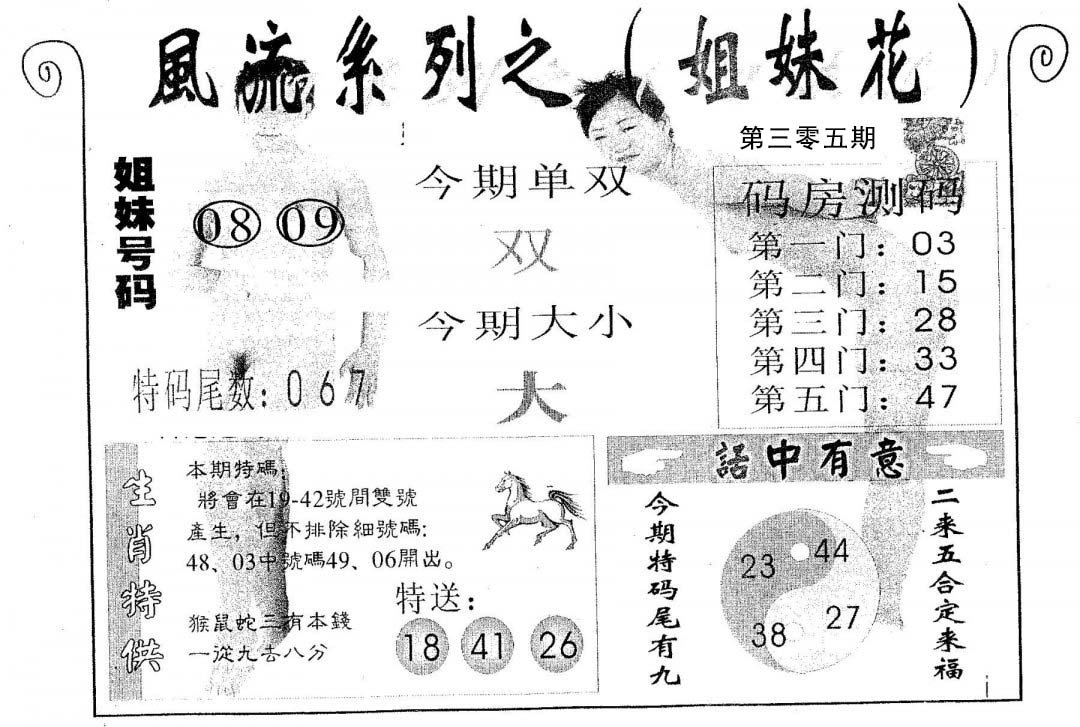 風流系列之（姐妹花）
第三零五期
姐妹号码
08 09
特码尾数：067
今期单双
双
今期大小
大
码房测码
第一门：03
第二门：15
第三门：28
第四门：33
第五门：47
生肖特供
本期特碼：
將會在19-42號間雙號
產生，但不排除細號碼：
48、03中號碼49、06開出。
猴鼠蛇三有本錢
一從九去八分
特送：
18 41 26
話中有意
今期特码尾有九
23 44
38 27
二来五合定来福